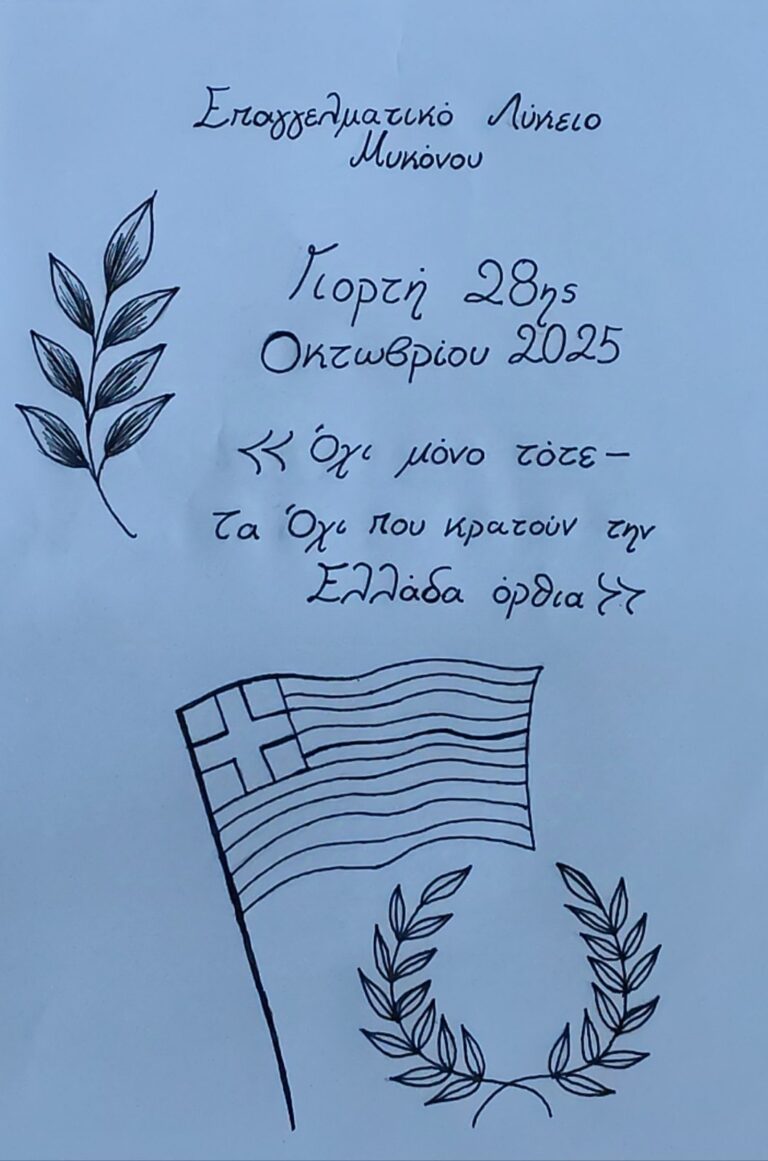 Επαγγελματικό Λύκειο
Μυκόνου
Γιορτή 28ης
Οκτωβρίου 2025
<< Όχι μόνο τότε-
τα Όχι που κρατούν την
Ελλάδα όρθια >>